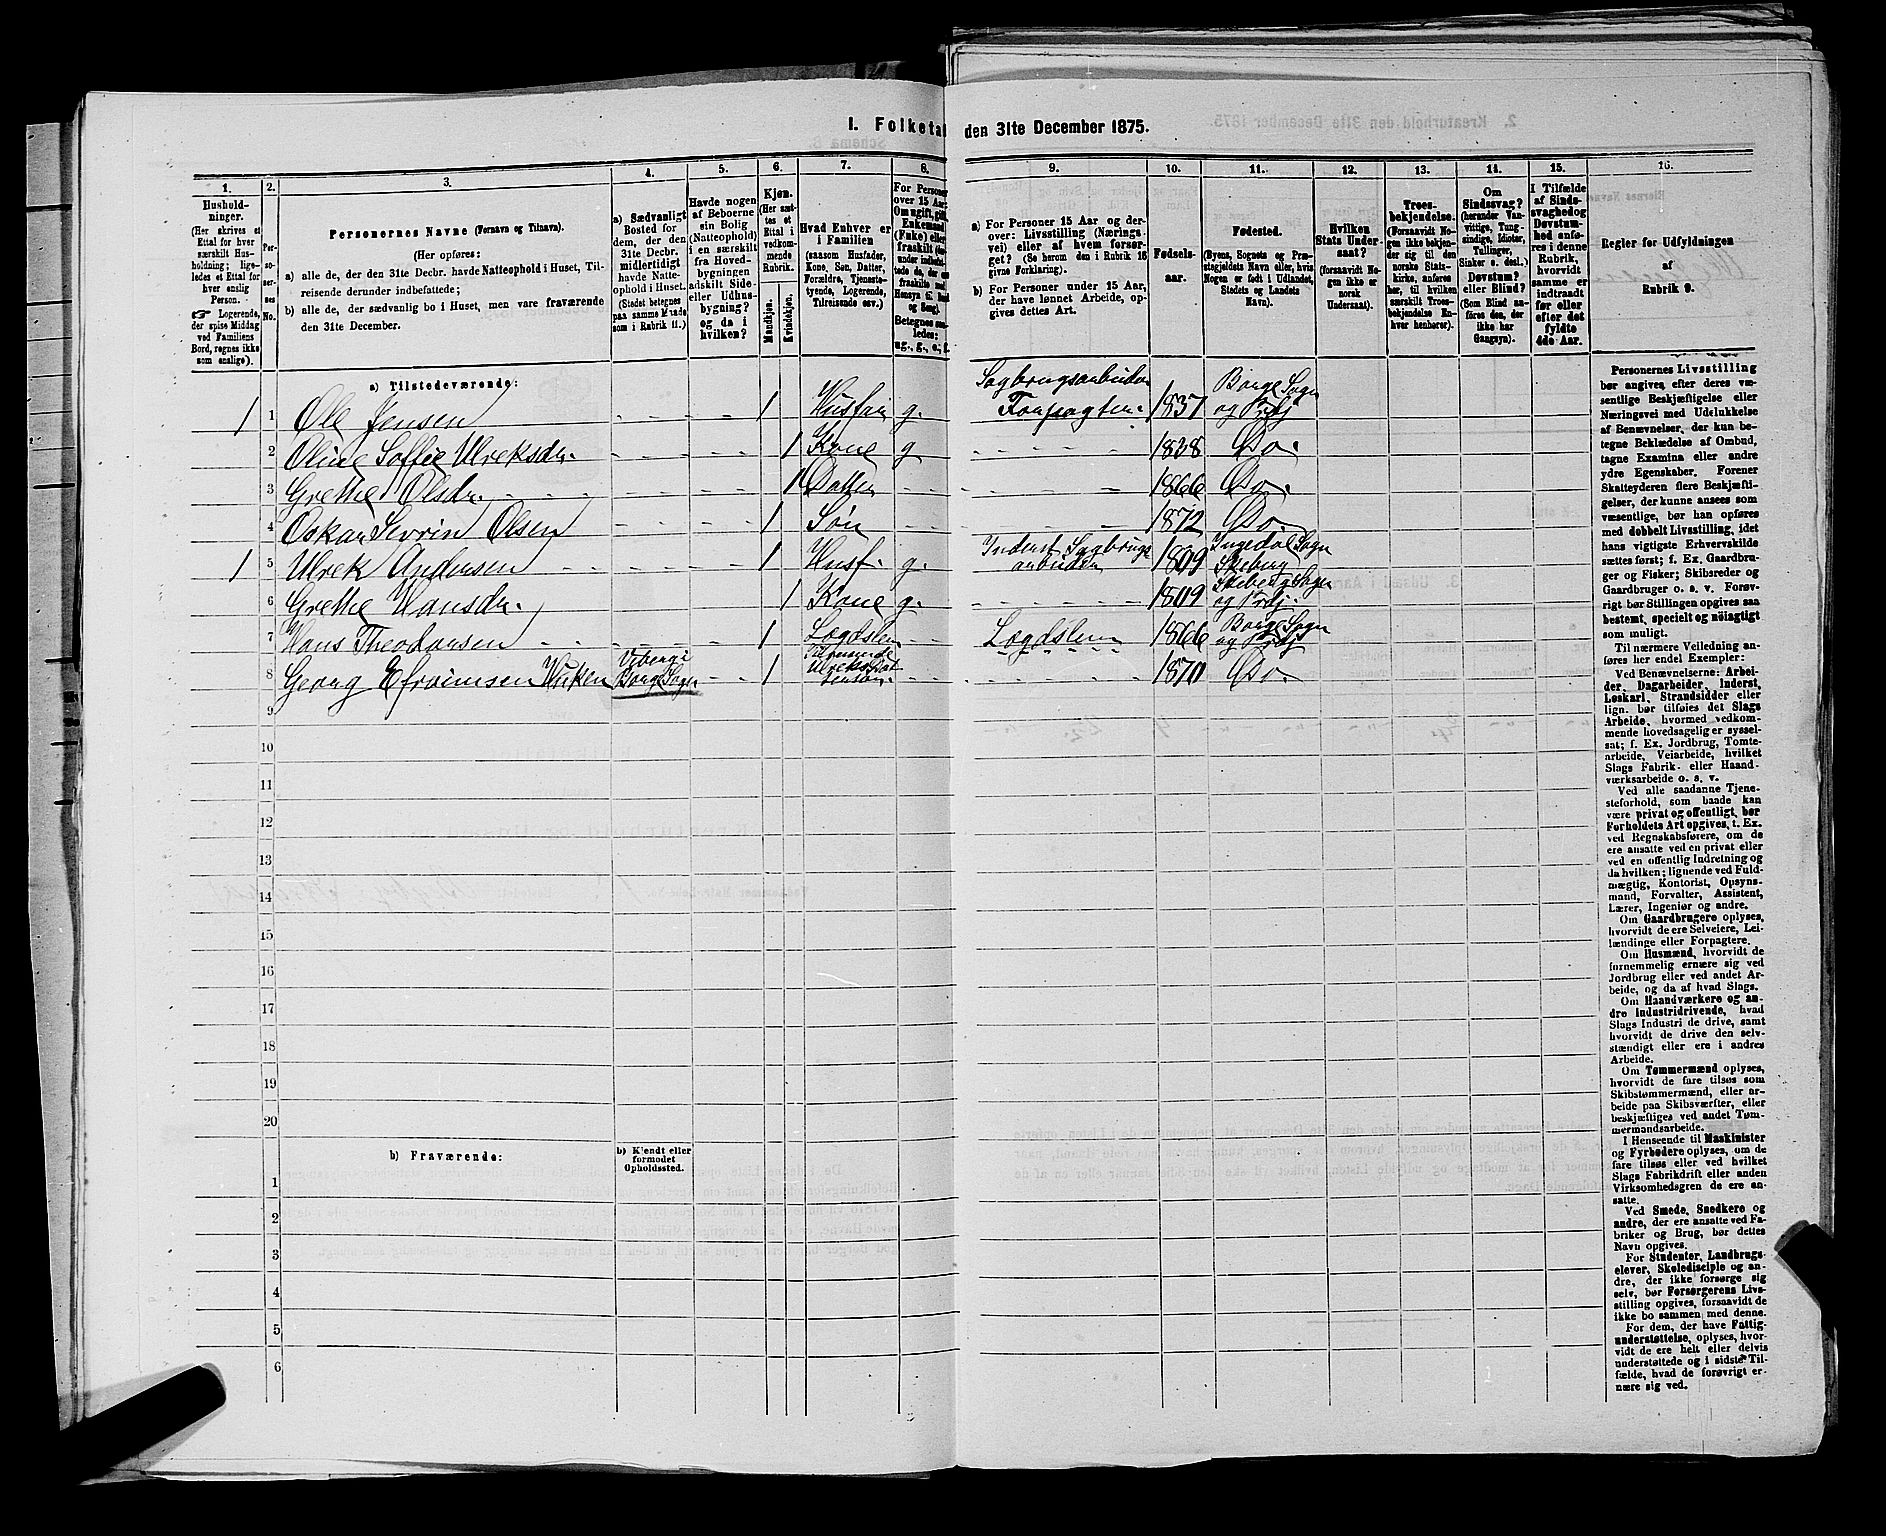 I. Folketal den 31te December 1875.
1. 2. 3. 4. 5. 6. 7. 8. 9. 10. 11. 12. 13. 14. 15. 16.
Hushold-
ninger.
(Her skrives et
Ettal for hver
særskilt Hus-
holdning; lige-
ledes et Ettal for
hver enslig
Person.
☞ Logerende,
der spise Middag
ved Familiens
Bord, regnes ikke
som enslige).
Per-
so-
ner-
nes
No.
Personernes Navne (Fornavn og Tilnavn).
(Her opføres:
a) alle de, der den 31te Decbr. havde Natteophold i Huset, Til-
reisende derunder indbefattede;
b) alle de, der sædvanlig bo i Huset, men vare fraværende
den 31te December.
a) Sædvanligt
Bosted for
dem, der den
31te Decbr.
midlertidigt
havde Natte-
ophold i Huset.
(Stedet betegnes
paa samme Maade
som i Rubrik 11.)
Havde nogen
af Beboerne
sin Bolig
(Natteophold)
i en særskilt
fra Hoved-
bygningen
adskilt Side-
eller Udhus-
bygning?
og da i
hvilken?
Kjøn.
(Her sæt-
tes et
Ettal i
vedkom-
mende
Rubrik.)
Mandkjøn.
Kvindekjøn.
Hvad Enhver er
i Familien
(saasom Husfader,
Kone, Søn, Datter,
Forældre, Tjeneste-
tyende, Logerende,
Tilreisende osv.)
For Personer
over 15 Aar:
Om ugift, gift,
Enkemand
(Enke) eller
fraskilt
Betegnes saa-
ledes:
ug., g., e., f.
a) For Personer 15 Aar og der-
over: Livsstilling (Nærings-
vei) eller af hvem forsør-
get? (Se herom den i Rubrik 16
givne Forklaring).
b) For Personer under 15 Aar,
der have lønnet Arbeide, op-
gives dettes Art.
Fødsels-
aar.
Fødested.
(Byens, Sognets og Præ-
stegjeldets Navn eller, hvis
Nogen er født i Udlandet,
Stedets og Landets
Navn).
Hvilken
Stats Under-
saat?
(forsaavidt No-
gen ikke er
norsk
Undersaat).
Troes-
bekjendelse.
(Forsaavidt No-
gen ikke bekjen-
der sig til den
norske Stats-
kirke, anføres
her, til hvilken
særskilt Troes-
bekjendelse En-
hver henhører).
Om
Sindssvag?
(herunder Van-
vittige, Tung-
sindige, Idioter,
Tullinger,
Sinker o. desl.)
Døvstum?
eller Blind?
(Som Blind an-
føres den, der
ikke har
Gangsyn).
I Tilfælde
af Sinds-
svaghed og
Døvstum-
hed anfø-
res i denne
Rubrik,
hvorvidt
samme er
indtraadt
før eller
efter det
fyldte
4de Aar.
Regler for Udfyldningen
af
Rubrik 9.
a) Tilstedeværende:
1 1 Ole Jensen 1 Husfar g. Sagbrugsarbeider Forpagter 1837 Borge Sogn og Prstgj
2 Oline Soffie Ulreksdr. 1 Kone g 1838 Do.
3 Grethe Olsdr. 1 Datter 1866 Do.
4 Oskar Sevrin Olsen 1 Søn 1872 Do.
1 5 Ulrek Andersen 1 Husf. g. Inderst Sagbrugsarbeider 1809 Ingedal Sogn Skeberg
6 Grethe Hansdr. 1 Kone g. 1809 Skeberg Sogn og Prstgj.
7 Hans Theodorsen 1 Lægdslem Lægdslem 1866 Borge Sogn og Prstgj
8 Georg Efroimsen Viken Viberg i Borge Sogn 1 Ulreks 1870 Do.
9
10
11
12
13
14
15
16
17
18
19
20
b) Fraværende:
b) Kjendt eller
formodet
Opholdssted.
1
2
3
4
5
6
Personernes Livsstilling
bør angives efter deres væ-
sentlige Beskjæftigelse eller
Næringsvei med Udelukkelse
af Benævnelser, der kun be-
tegne Beklædelse af Ombud,
tagne Examina eller andre
ydre Egenskaber. Forener
Skatteyderen flere Beskjæfti-
gelser, der kunne ansees som
væsentlige, bør han opføres
med dobbelt Livsstilling, idet
hans vigtigste Erhvervskilde
sættes først; f. Ex. Gaardbru-
ger og Fisker; Skibsreder og
Gaardbruger o. s. v. Forøv-
rigt bør Stillingen opgives saa
bestemt, specielt og nøiagtigt
som muligt.
Til nærmere Veiledning an-
føres her endel Exempler:
Ved Benævnelserne: Arbei-
der, Dagarbeider, Inderst,
Løskarl, Strandsidder eller
lign. bør tilføies det Slags
Arbeide, hvormed vedkom-
mende hovedsagelig er syssel-
sat; f. Ex. Jordbrug, Tomte-
arbeide, Veiarbeide, hvilket
Slags Fabrik- eller Haand-
værksarbeide o. s. v.
Ved alle saadanne Tjene-
steforhold, som baade kan
være privat og offentligt, bør
Forholdets Art opgives, t. Ex.
ved Regnskabsførere, om de
ere ansatte ved en privat eller
ved en offentlig Indretning og
da hvilken; lignende ved Fuld-
mægtig, Kontorist, Opsyns-
mand, Forvalter, Assistent,
Lærer, Ingeniør og andre.
Om Gaardbrugere oplyses,
hvorvidt de ere Selveiere, Lei-
lændinge eller Forpagtere.
Om Husmænd, hvorvidt de
fornemmelig ernære sig ved
Jordbrug eller ved andet Ar-
beide, og da af hvad Slags.
Om Haandværkere og an-
dre Industridrivende, hvad
Slags Industri de drive, samt
hvorvidt de drive den selv-
stændigt eller ere i andres
Arbeide.
Om Tømmermænd oplyses,
hvorvidt de fare tilsøs som
Skibstømmermænd, eller ar-
beide paa Skibsværfter, eller
beskjæftiges ved andet Tøm-
mermandsarbeide.
I Henseende til Maskinister
og Fyrbødere oplyses, om de
fare tilsøs eller ved hvilket
Slags Fabrikdrift eller anden
Virksomhedsgren de ere an-
satte.
Ved Smede, Snedkere og
andre, der ere ansatte ved Fa-
briker og Brug, bør dettes
Navn opgives.
For Studenter, Landbrugs-
elever, Skoledisciple og an-
dre, der ikke forsørge sig
selv, bør Forsørgerens Livs-
stilling opgives, forsaavidt de
ikke bo sammen med denne.
For dem, der have Fattig-
understøttelse, oplyses, hvor-
vidt de ere helt eller delvis
understøttede og i sidste Til-
fælde, hvad de forøvrigt er-
nære sig ved.